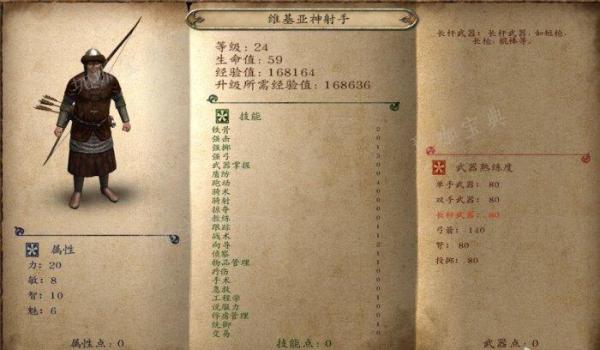 维基亚神射手
等级: 24
生命值: 59
经验值: 168164
升级所需经验值: 168636
技能
铁骨
强击
强掷
强弓
武器掌握
盾防
跑动
骑术
骑射
掠夺
教练
跟踪
战术
向导
侦察
物品管理
疗伤
手术
急救
工程学
说服力
俘虏管理
统御
交易
技能点: 0
属性
力: 20
敏: 8
智: 10
魅: 6
属性点: 0
长杆武器: 长杆武器, 如短枪,
长枪, 棍棒等。
武器熟练度
单手武器: 80
双手武器: 80
长杆武器: 80
弓箭: 140
弩: 80
投掷: 80
武器点: 0